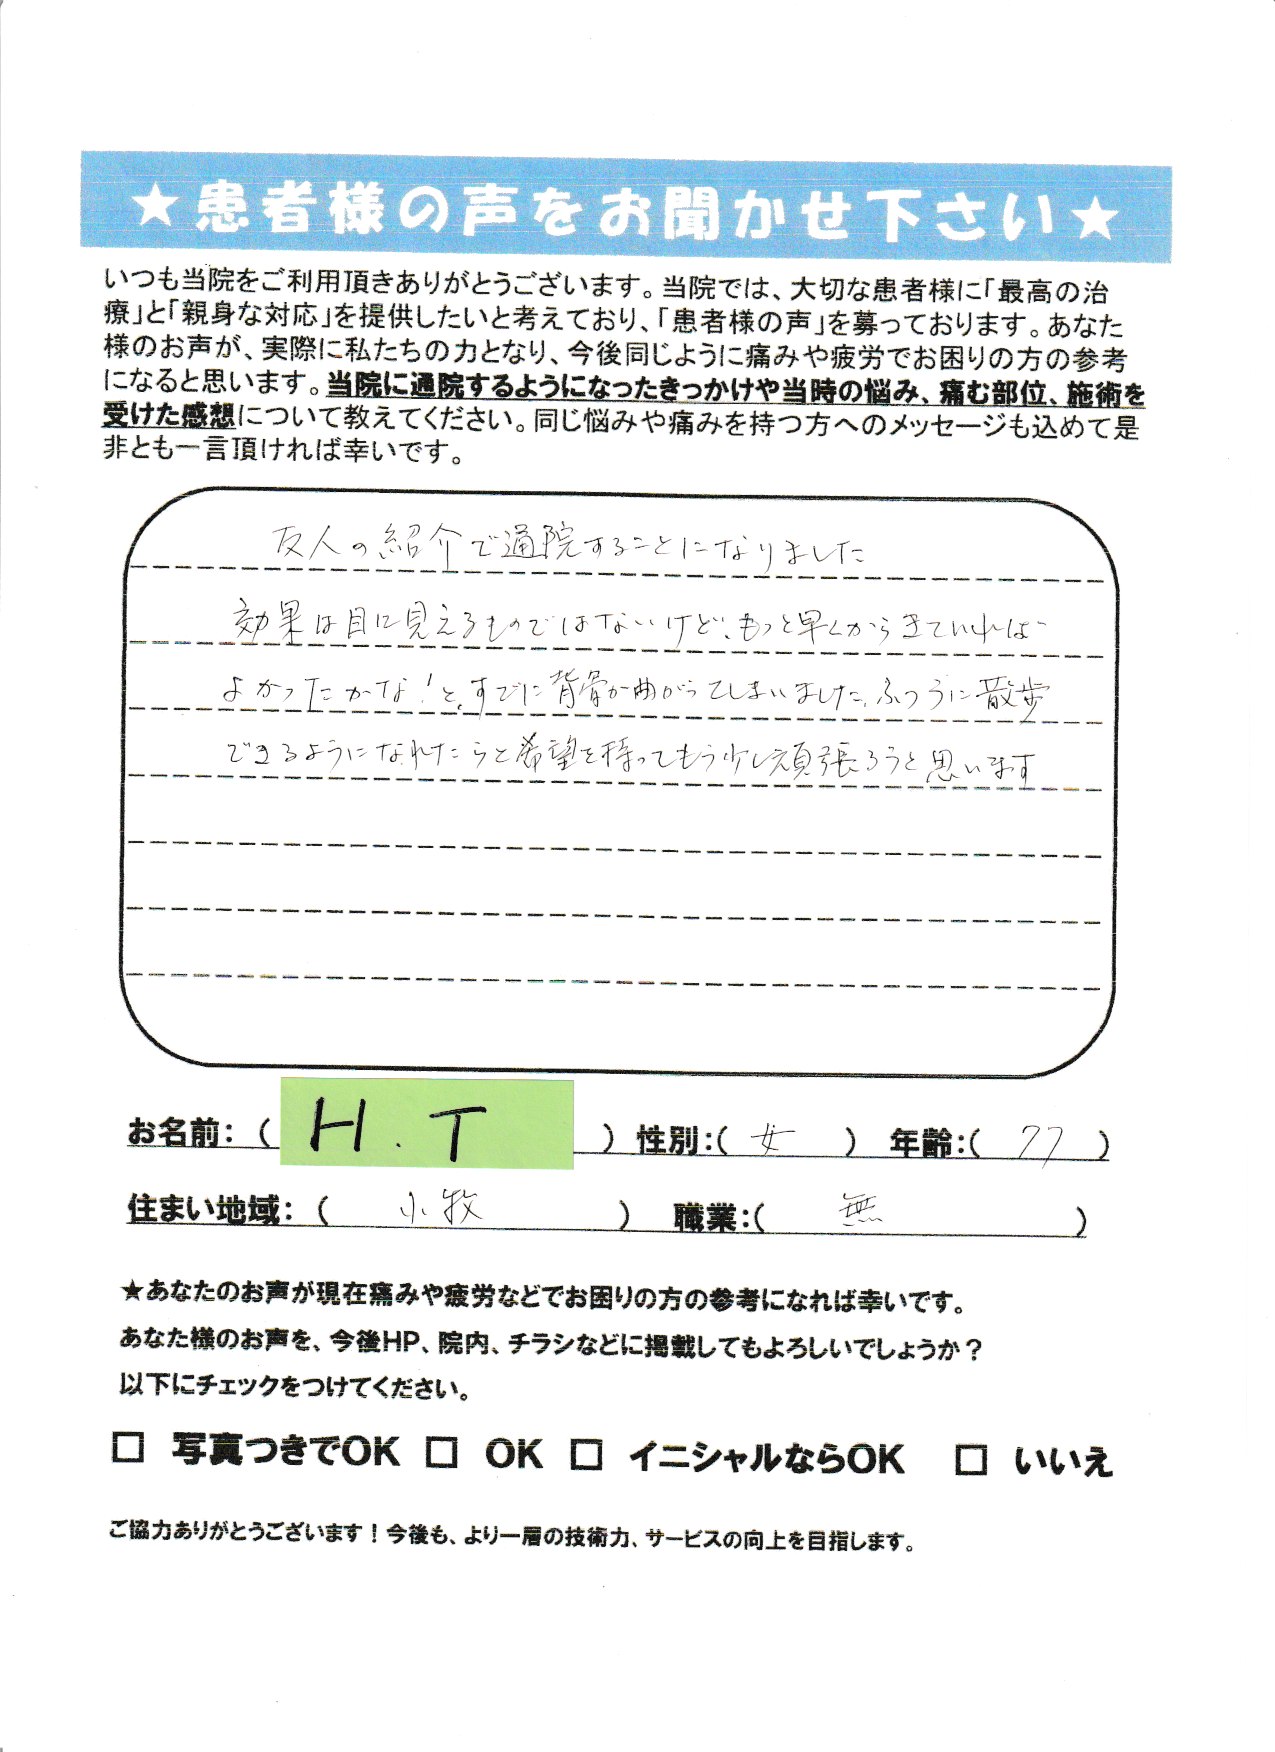 ★患者様の声をお聞かせ下さい★
いつも当院をご利用頂きありがとうございます。当院では、大切な患者様に「最高の治
療」と「親身な対応」を提供したいと考えており、「患者様の声」を募っております。あなた
様のお声が、実際に私たちの力となり、今後同じように痛みや疲労でお困りの方の参考
になると思います。当院に通院するようになったきっかけや当時の悩み、痛む部位、施術を
受けた感想について教えてください。同じ悩みや痛みを持つ方へのメッセージも込めて是
非とも一言頂ければ幸いです。
友人の紹介で通院することになりました
効果は目に見えるものではないけど、もっと早くからきていれば
よかったかな!と、すでに背骨が曲がってしまいました。ふつうに散歩
できるようになれたらと希望を持ってもう少し頑張ろうと思います
お名前:( H.T ) 性別:( 女 ) 年齢:( 77 )
住まい地域:( 小牧 ) 職業:( 無 )
★あなたのお声が現在痛みや疲労などでお困りの方の参考になれば幸いです。
あなた様のお声を、今後HP、院内、チラシなどに掲載してもよろしいでしょうか?
以下にチェックをつけてください。
□ 写真つきでOK □ OK □ イニシャルならOK □ いいえ
ご協力ありがとうございます!今後も、より一層の技術力、サービスの向上を目指します。